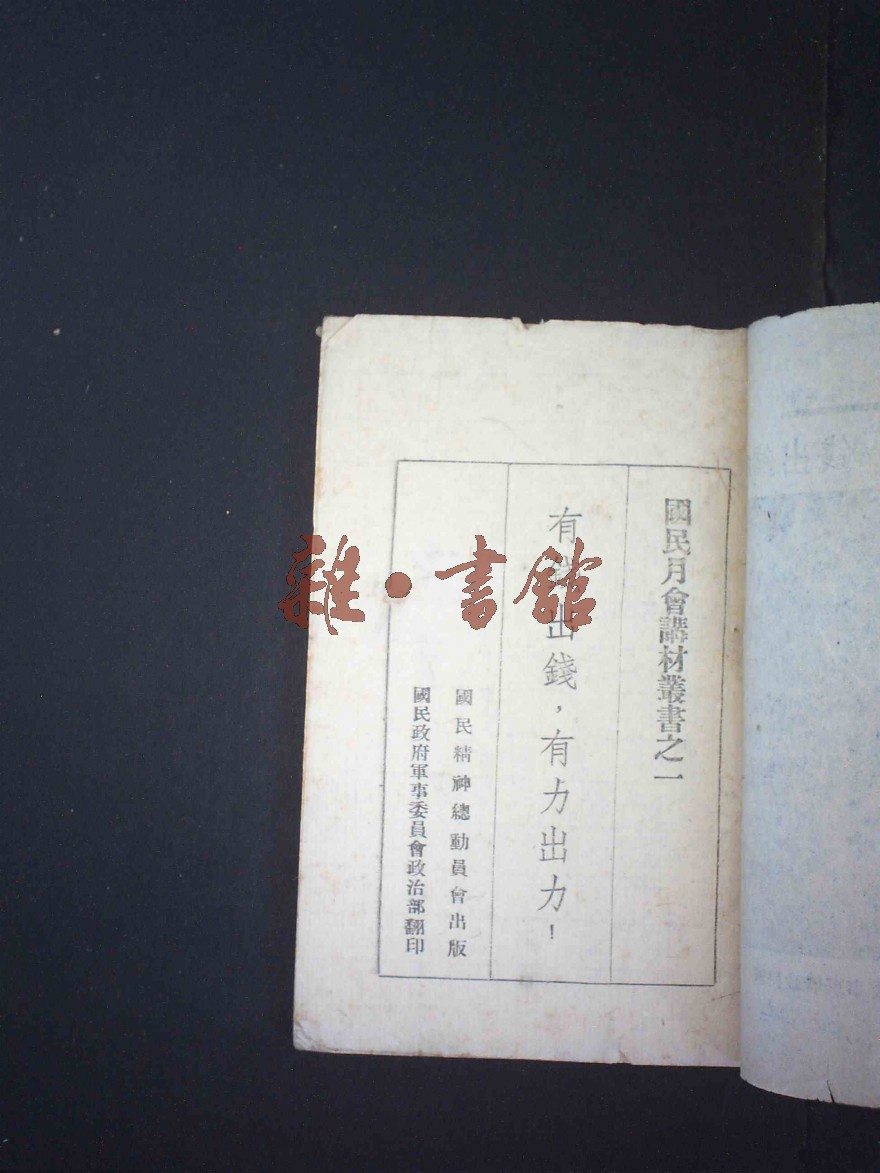 國民月會講材叢書之一
有錢出錢，有力出力！
國民精神總動員會出版
國民政府軍事委員會政治部翻印
雜·書館